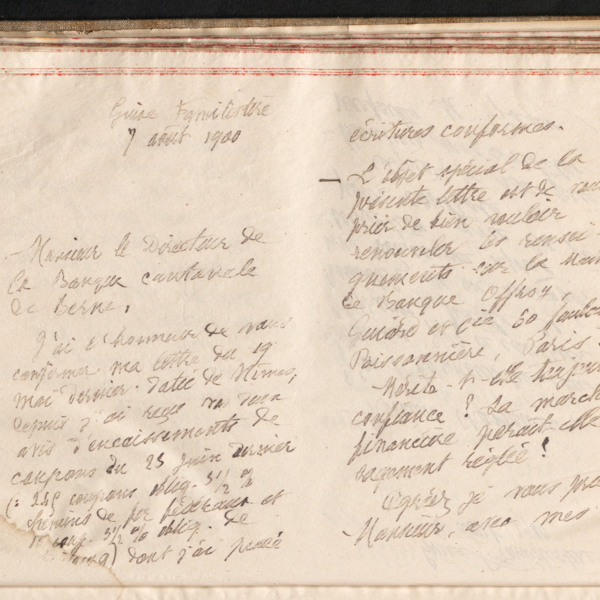 Guise Familistère
7 août 1900
Monsieur le Directeur de
la Banque cantonale
de Berne,
J'ai l'honneur de vous
confirmer ma lettre du 19
mai dernier datée de Nîmes,
Depuis j'ai reçu
avis d'encaissements de
coupons du 25 juin dernier
coupons oblig. 3 1/2 %
chemins de fer fédéraux et
coup. 3 1/2 % oblig. de
dont j'ai passé
écritures conformes.
— L'objet spécial de la
présente lettre est de vous
prier de bien vouloir
renouveler les rensei-
gnements sur la
de Banque Offroy,
Guiard et Cie 60 faubou
Poissonnière, Paris.
Mérite-t-elle toujours
confiance? Sa march
financière paraît-elle
sagement réglée?
Agréez je vous prie
Monsieur, avec mes